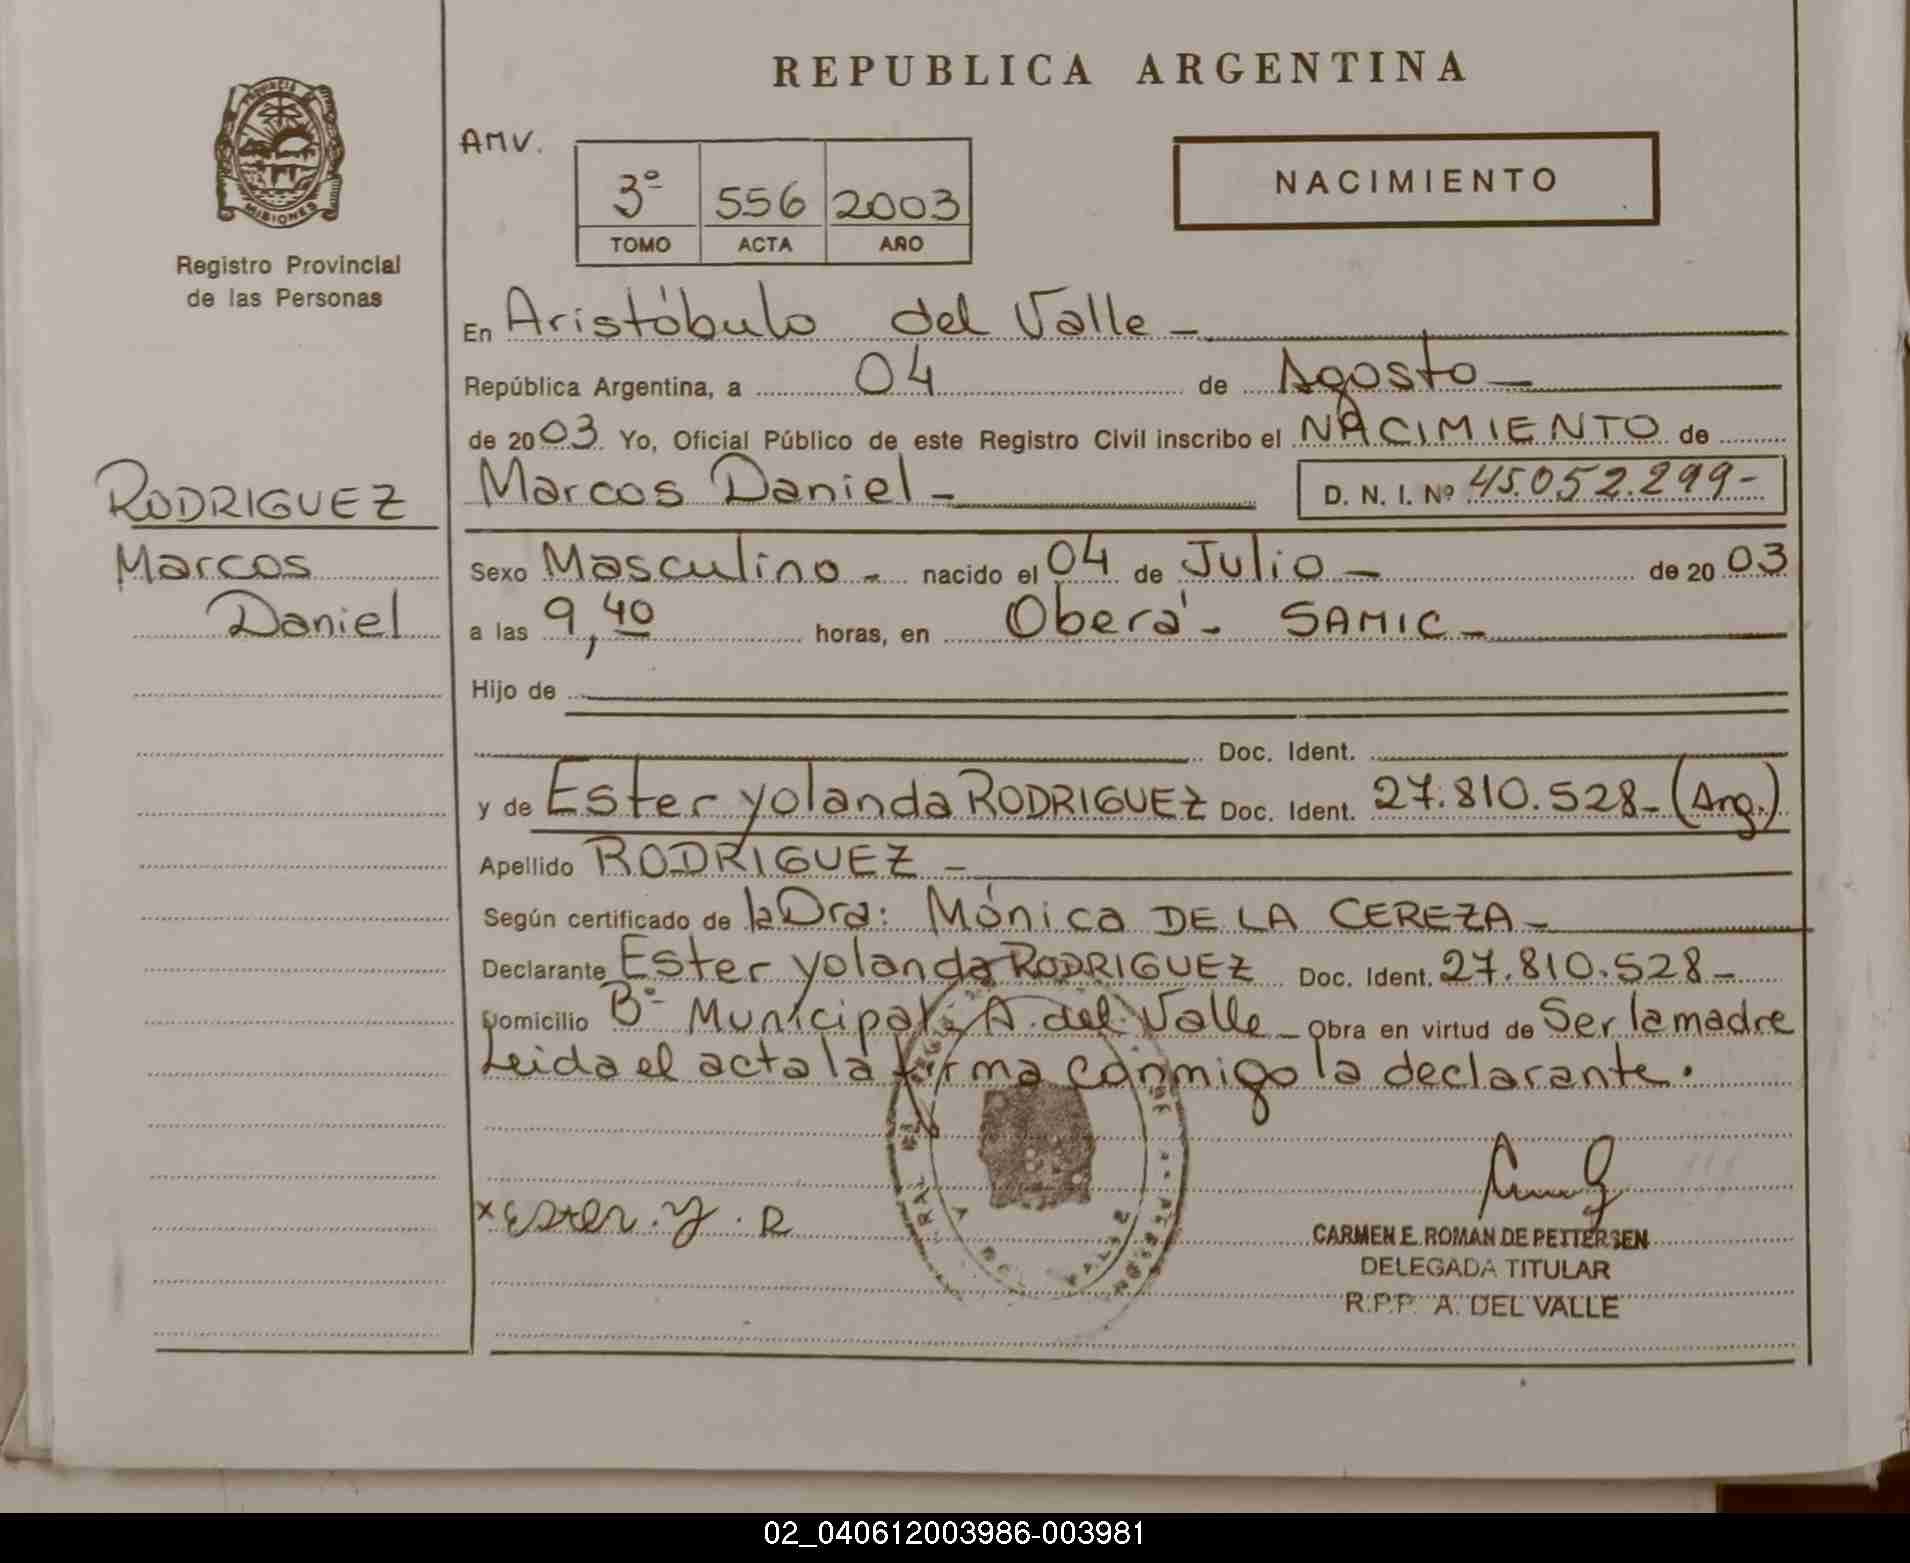 REPUBLICA ARGENTINA
PROVINCIA DE
MISIONES
Registro Provincial
de las Personas
AMV.
3º 556 2003
TOMO ACTA AÑO
NACIMIENTO
En Aristóbulo del Valle -
República Argentina, a 04 de Agosto -
de 2003 Yo, Oficial Público de este Registro Civil inscribo el NACIMIENTO de
RODRIGUEZ
Marcos
Daniel
Marcos Daniel - D. N. I. Nº 45.052.299-
Sexo Masculino - nacido el 04 de Julio - de 2003
a las 9,40 horas, en Oberá - SAMIC -
Hijo de
Doc. Ident.
y de Ester yolanda RODRIGUEZ Doc. Ident. 27.810.528- (Arg.)
Apellido RODRIGUEZ -
Según certificado de la Dra: Mónica DE LA CEREZA -
Declarante Ester yolanda RODRIGUEZ Doc. Ident. 27.810.528-
Domicilio Bº Municipal - A. del Valle - Obra en virtud de Ser la madre
Leida el acta la firma conmigo la declarante.
x Ester. y. R
CARMEN E. ROMAN DE PETTERSEN
DELEGADA TITULAR
R.P.P. A. DEL VALLE
02_040612003986-003981